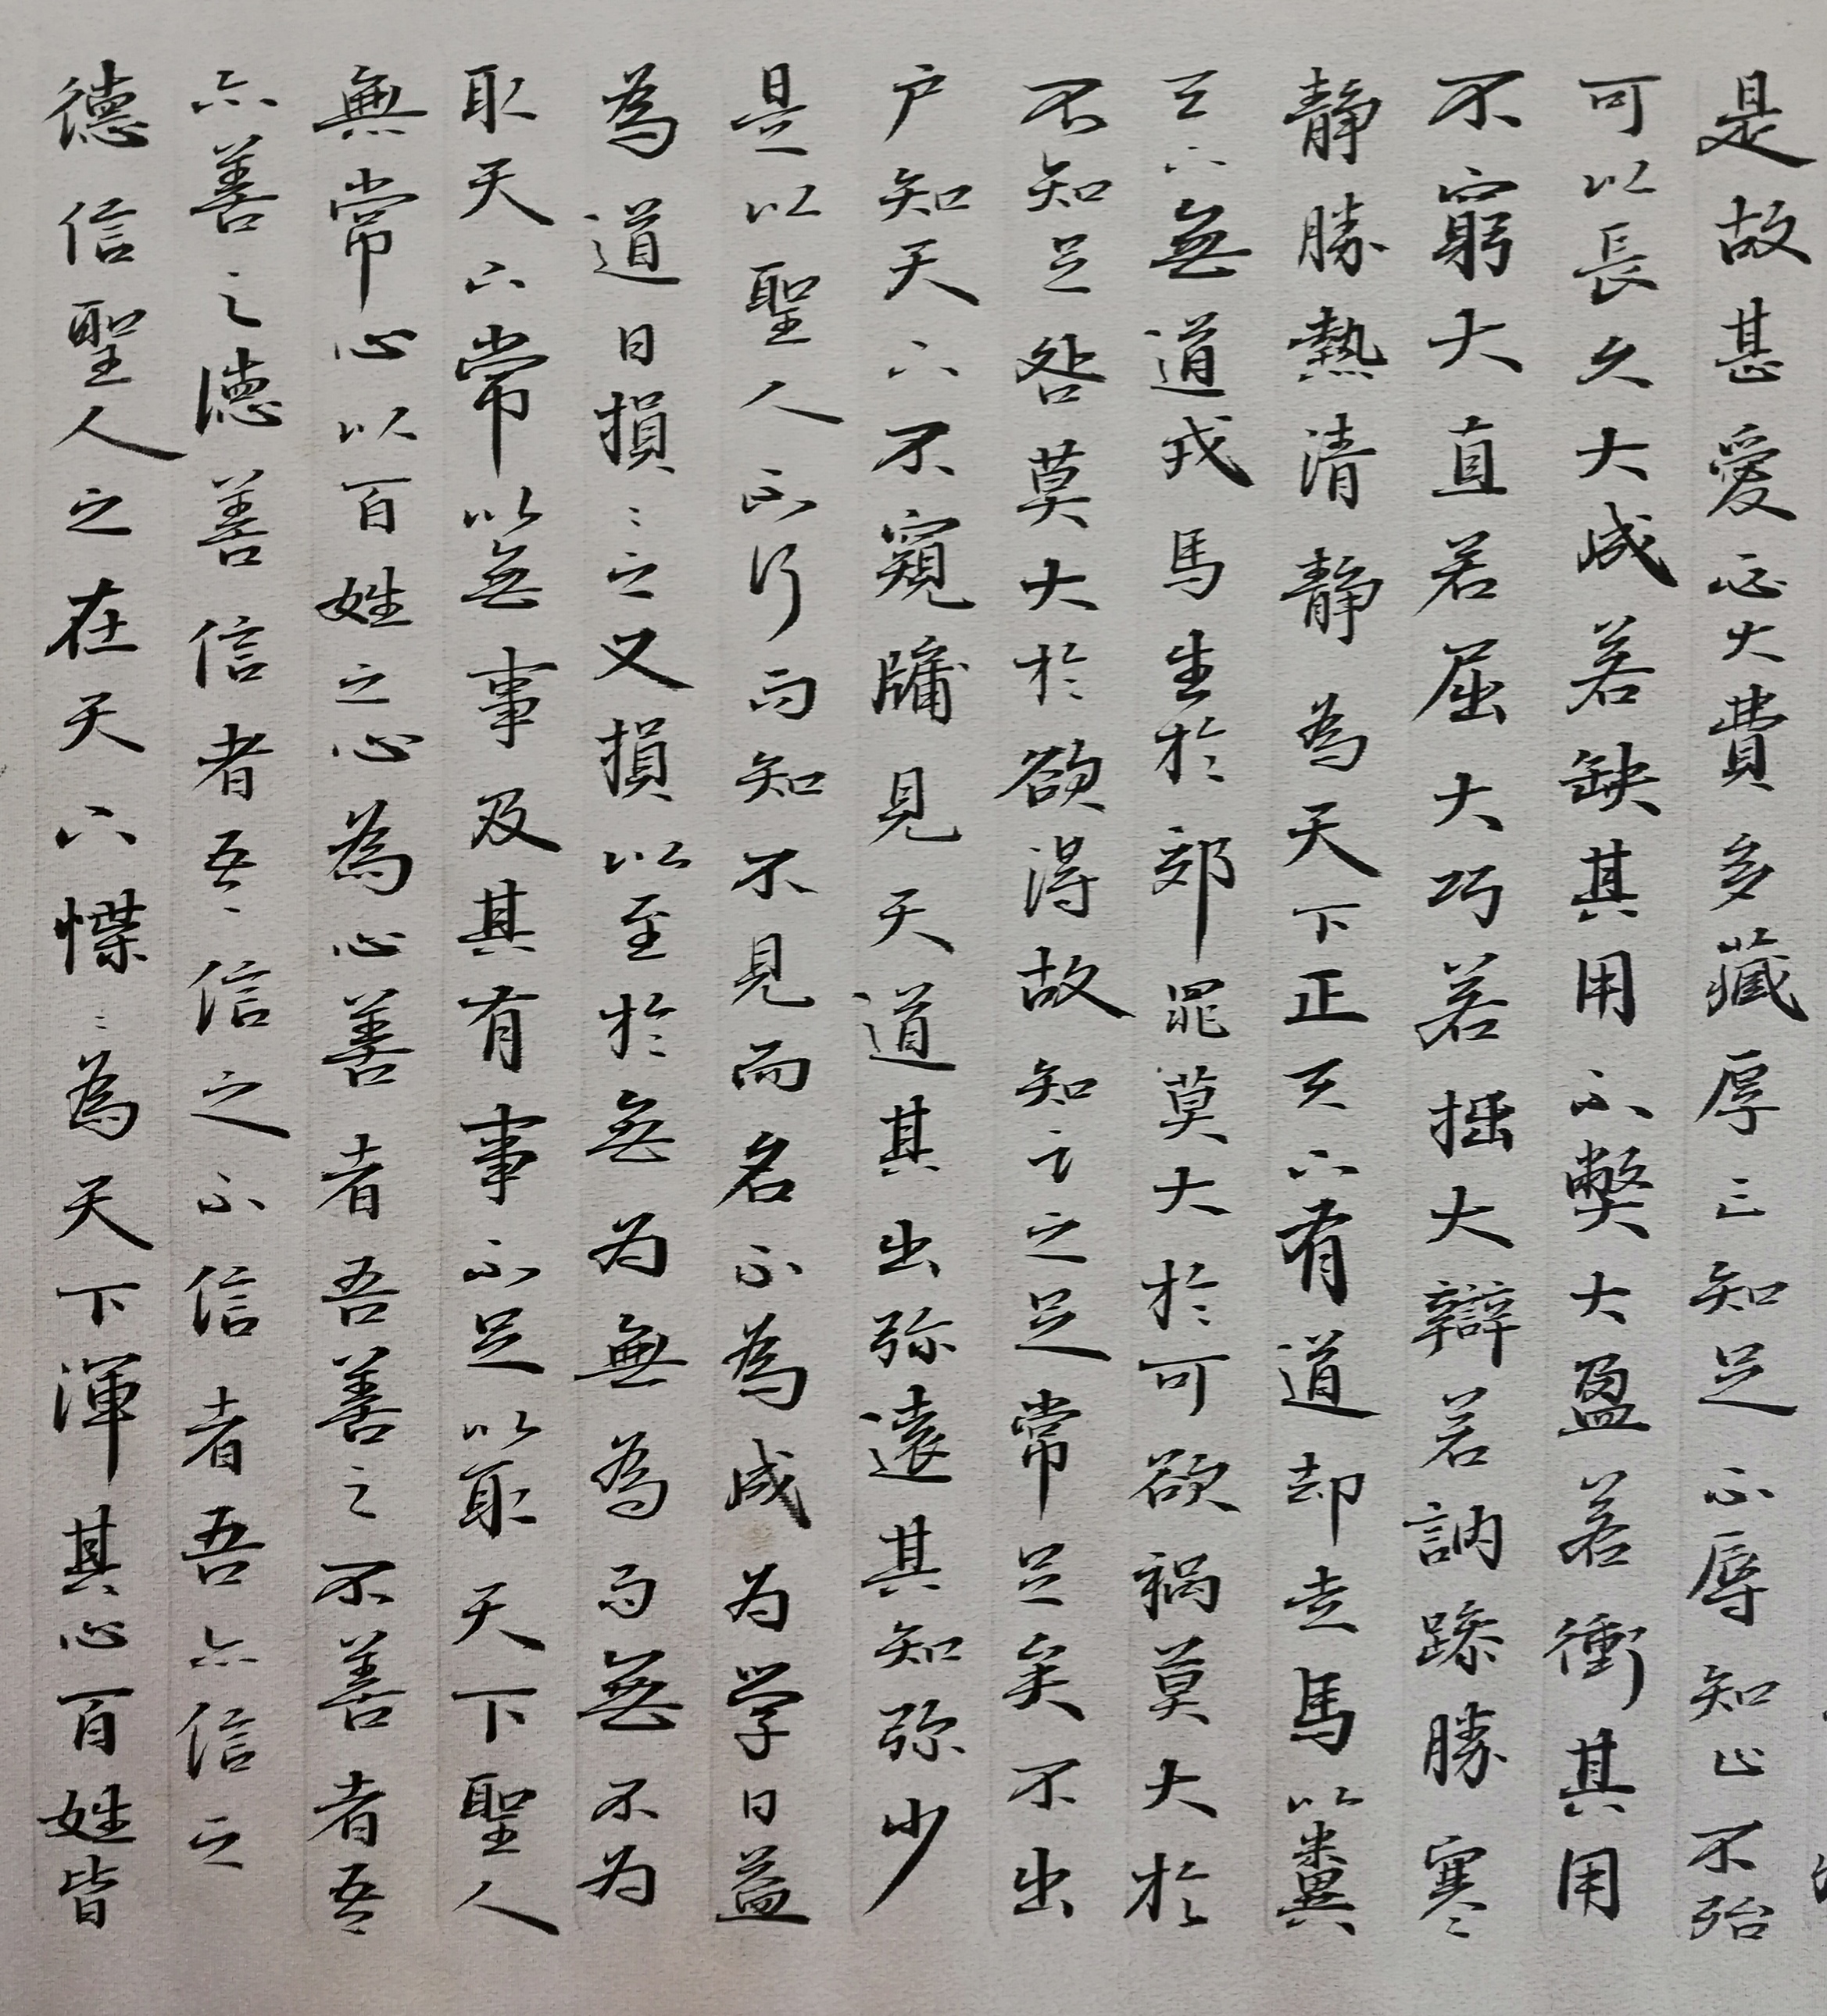 是故甚愛必大費多藏厚亡知足不辱知止不殆
可以長久大成若缺其用不弊大盈若衝其用
不窮大直若屈大巧若拙大辯若訥躁勝寒
静勝熱清静為天下正天下有道却走馬以糞
天下無道戎馬生於郊罪莫大於可欲禍莫大於
不知足咎莫大於欲得故知足之足常足矣不出
户知天下不窺牖見天道其出弥遠其知弥少
是以聖人不行而知不見而名不為成为学日益
為道日損〻之又損以至於無为無為而無不为
取天下常以無事及其有事不足以取天下聖人
無常心以百姓之心為心善者吾善之不善者吾
亦善之德善信者吾信之不信者吾亦信之
德信聖人之在天下惵〻為天下渾其心百姓皆